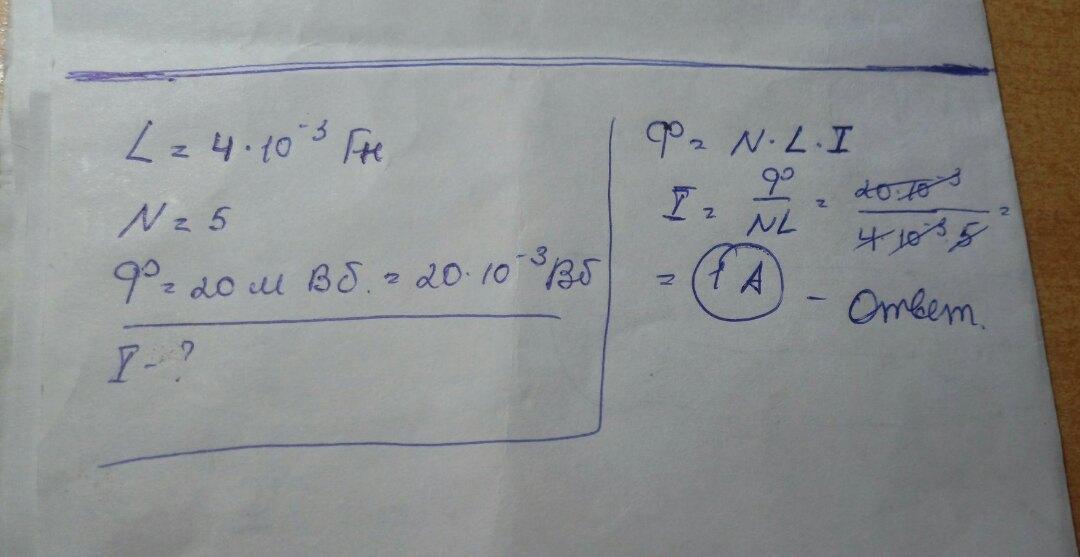 L = 4·10⁻³ Гн
N = 5
Φ = 20 м Вб. = 20·10⁻³ Вб
I - ?
Φ = N·L·I
I = Φ/NL = 20·10⁻³/4·10⁻³·5 =
= 1 А - Ответ.